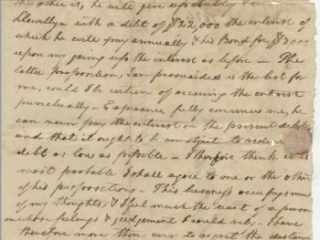 the other is, he will give
Llewellyn with a debt of $22,000 the interest of
which he will pay annually & his Bond for $3000
upon my giving up the interest as before — The
latter proposition, I am persuaded is the best for
me, could I be certain of receiving the interest
punctually — Experience fully convinces me, he
can never pay the interest on the present debt,
and that it ought to be an object to reduce
debt as low as possible — I therefore think it is
most probable I shall agree to one or the other
of his propositions — This business occupies much
of my thoughts, & I feel much the want of a person
on whose feelings & judgement I could rely — I have
therefore more than ever to regret the